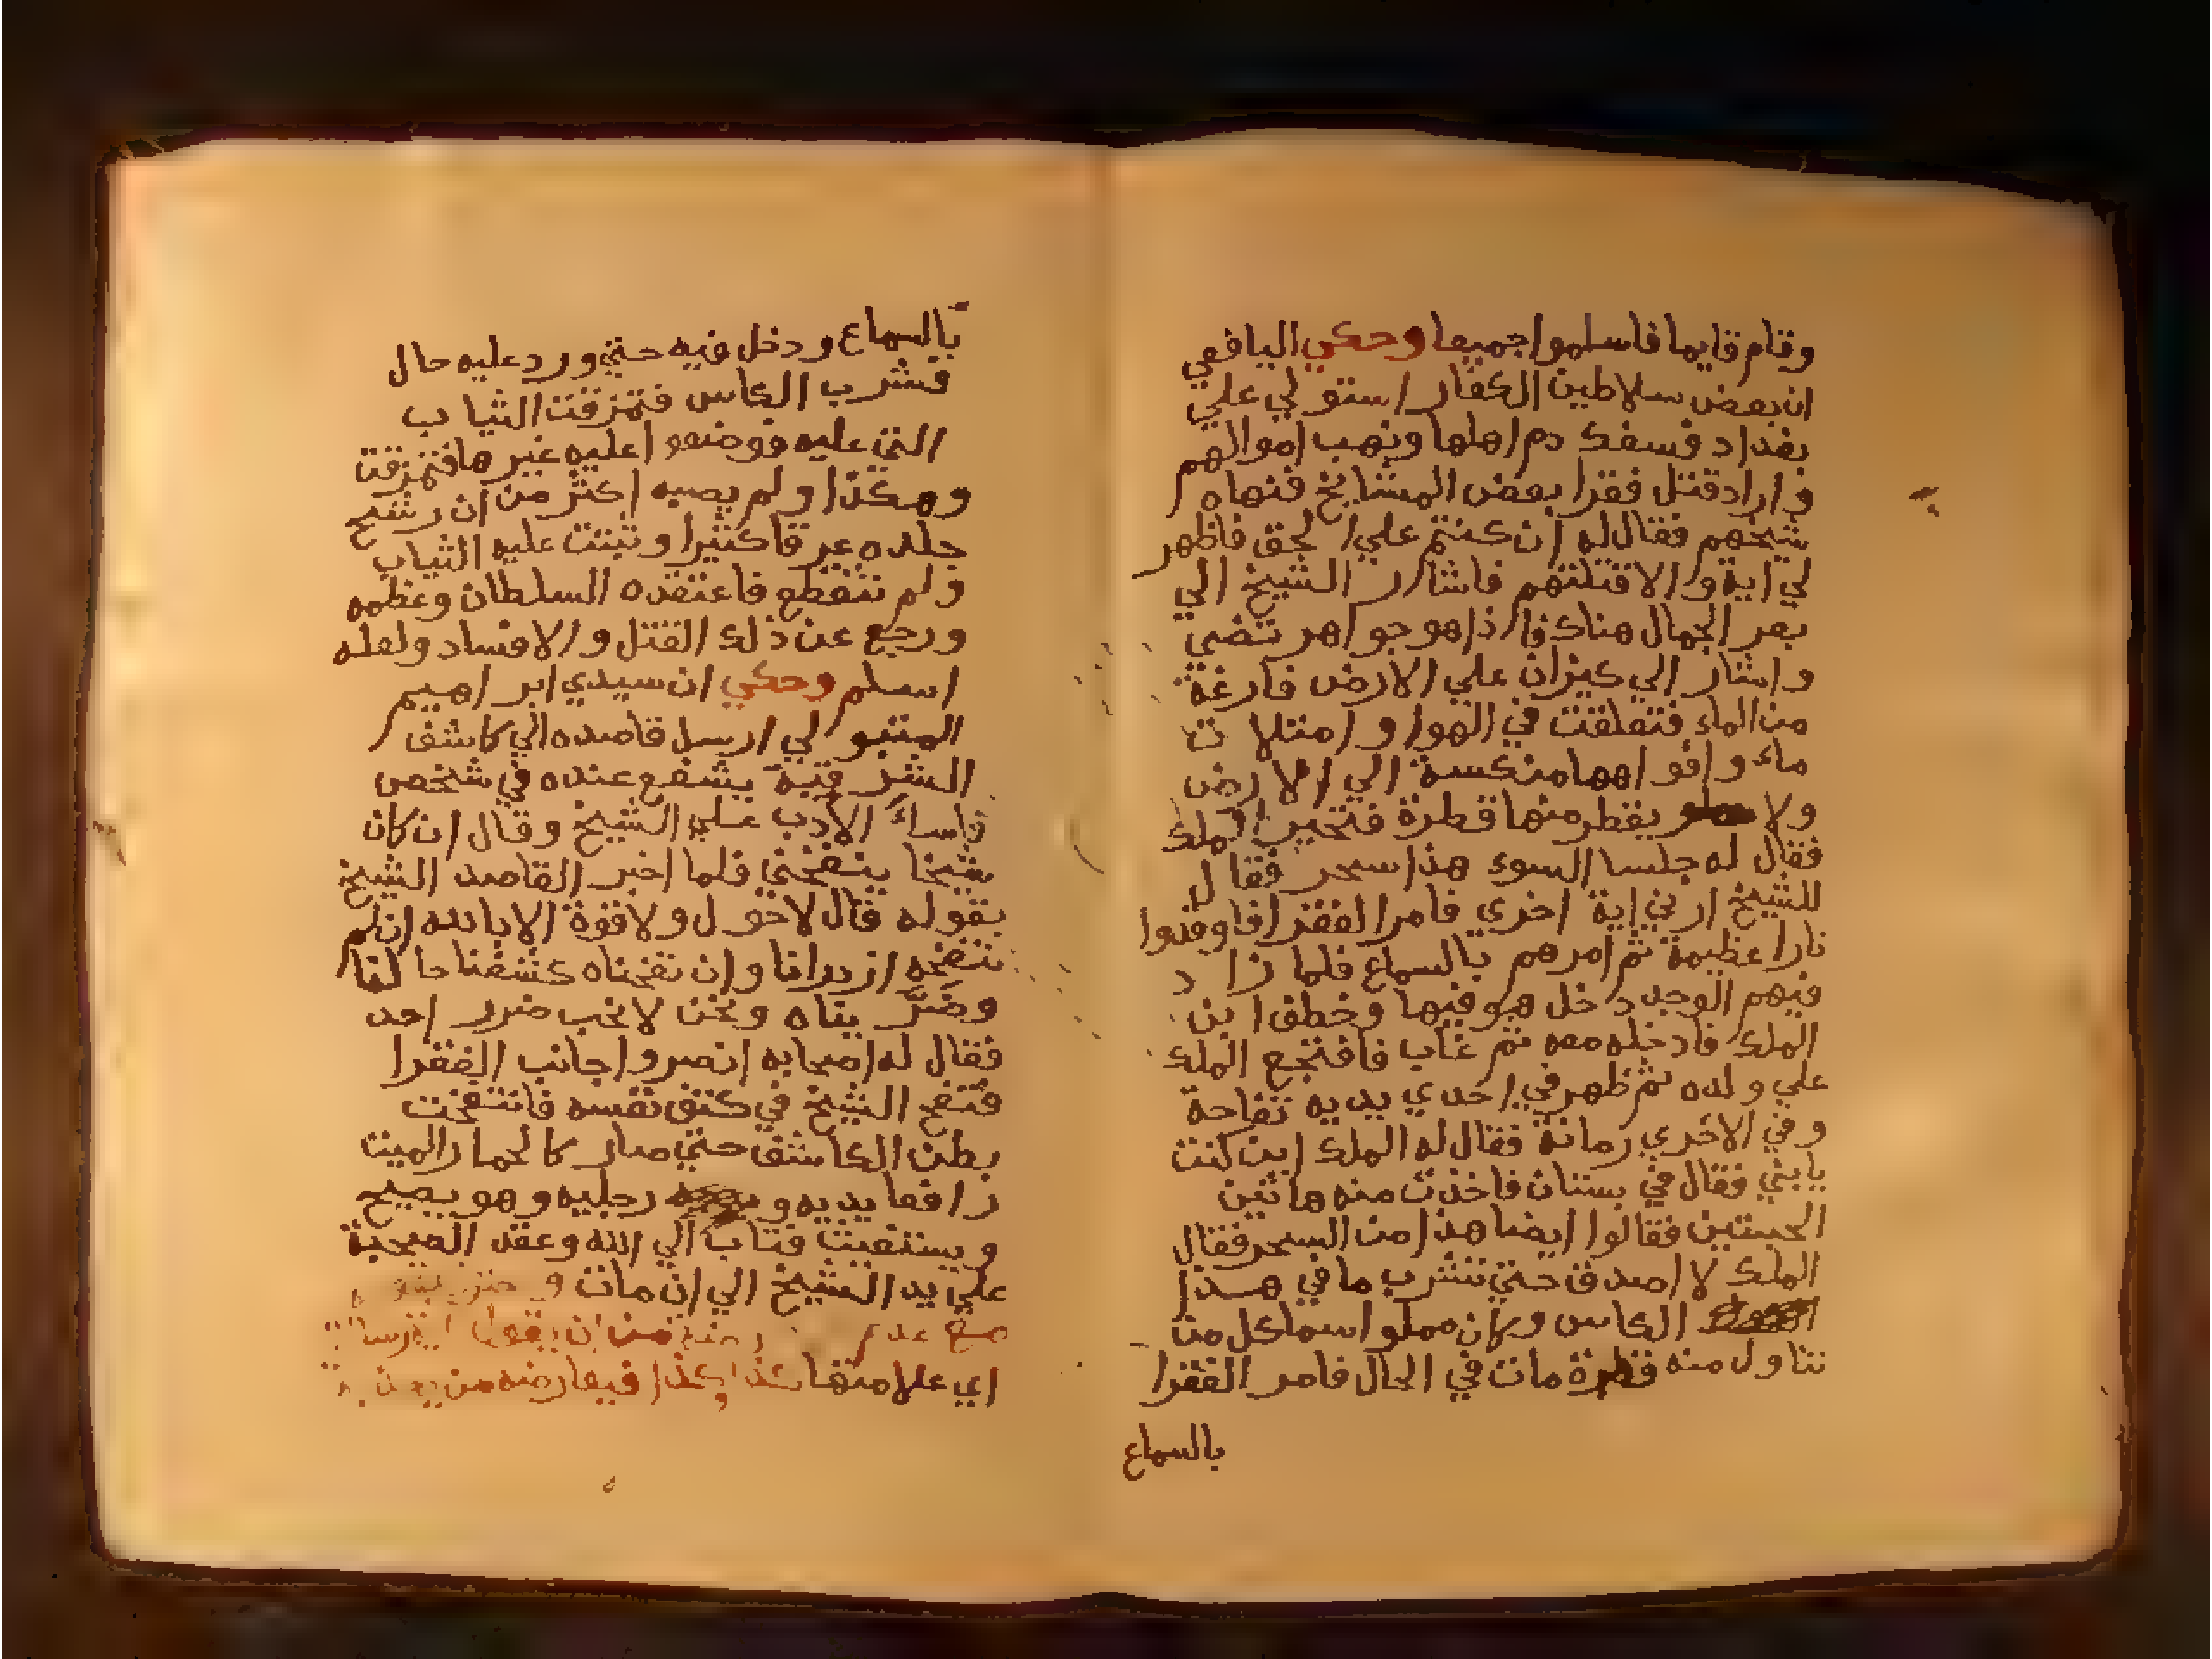 وقام قايما فاسلموا جميعا وحكي اليافعي
ان بعض سلاطين الكفار استولي علي
بغداد فسفك دم اهلها ونهب اموالهم
واراد قتل فقرا بعض المشايخ فنهاه
شيخهم فقال له ان كنتم علي الحق فاظهر
لي اية والا قتلتهم فاشار الشيخ الي
بعر الجمال هناك فاذا هو جواهر تضي
واشار الي كيزان علي الارض فارغة
من الماء فتعلقت في الهوا وامتلات
ماء وافواهها منكسة الي الارض
ولا يقطر منها قطرة فتحير الملك
فقال له جلسا السوء هذا سحر فقال
للشيخ ارني اية اخري فامر الفقرا فاوقدوا
نارا عظيمة ثم امرهم بالسماع فلما زاد
فيهم الوجد دخل هو فيها وخطف ابن
الملك فادخله معه ثم غاب فافتجع الملك
علي ولده ثم ظهر في احدي يديه تفاحة
وفي الاخري رمانة فقال له الملك اين كنت
يا بني فقال في بستان فاخذت منه هاتين
الحبتين فقالوا ايضا هذا من السحر فقال
الملك لا اصدق حتي تشرب ما في هذا
الكاس وكان مملوا سما كل من
تناول منه قطرة مات في الحال فامر الفقرا
بالسماع
بالسماع ودخل فيه حتي ورد عليه حال
فشرب الكاس فتمزقت الثياب
التي عليه فوضعوا عليه غيرها فتمزقت
وهكذا ولم يصبه اكثر من ان رشح
جلده عرقا كثيرا وثبتت عليه الثياب
ولم تتقطع فاعتقده السلطان وعظمه
ورجع عن ذلك القتل والافساد ولعله
اسلم وحكي ان سيدي ابراهيم
المتبولي ارسل قاصده الي كاشف
الشرقية يشفع عنده في شخص
فاساء الادب علي الشيخ وقال ان كان
شيخا ينفخني فلما اخبر القاصد الشيخ
بقوله قال لاحول ولاقوة الا بالله ان لم
ننفخه ازدرانا وان نفخناه كشفنا حالنا
وضريناه ونحن لا نحب ضرر احد
فقال له اصحابه انصروا جانب الفقرا
فنفخ الشيخ في كتف نفسه فانتفخت
بطن الكاشف حتي صار كالحمار الميت
رافعا يديه و رجليه وهو يصيح
ويستغيث فتاب الي الله وعقد الصحبة
علي يد الشيخ الي ان مات
مع من ان يقول
اي علامتها كذا وكذا فيعارضه من